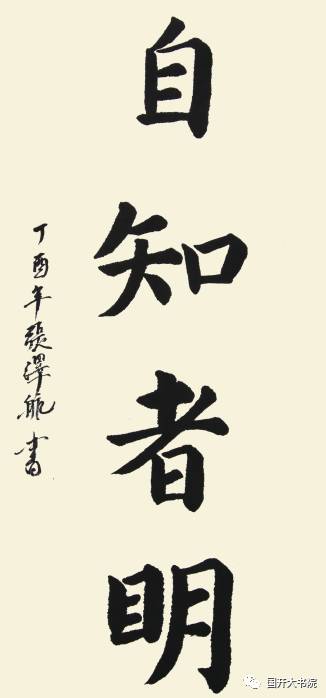 自知者明
丁酉年張澤航書
国开大书院